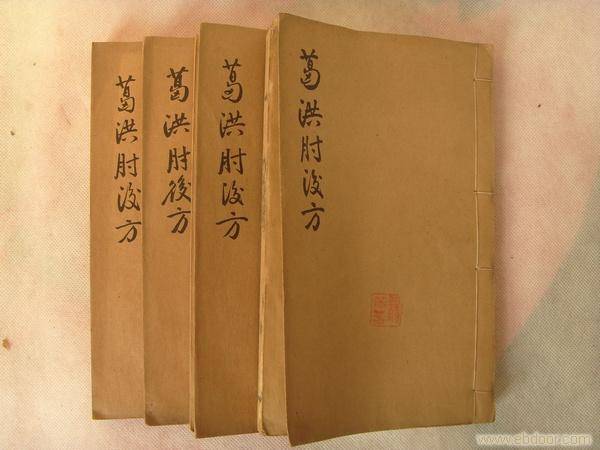 葛洪肘後方
葛洪肘後方
葛洪肘後方
葛洪肘後方
www.ebdoor.com